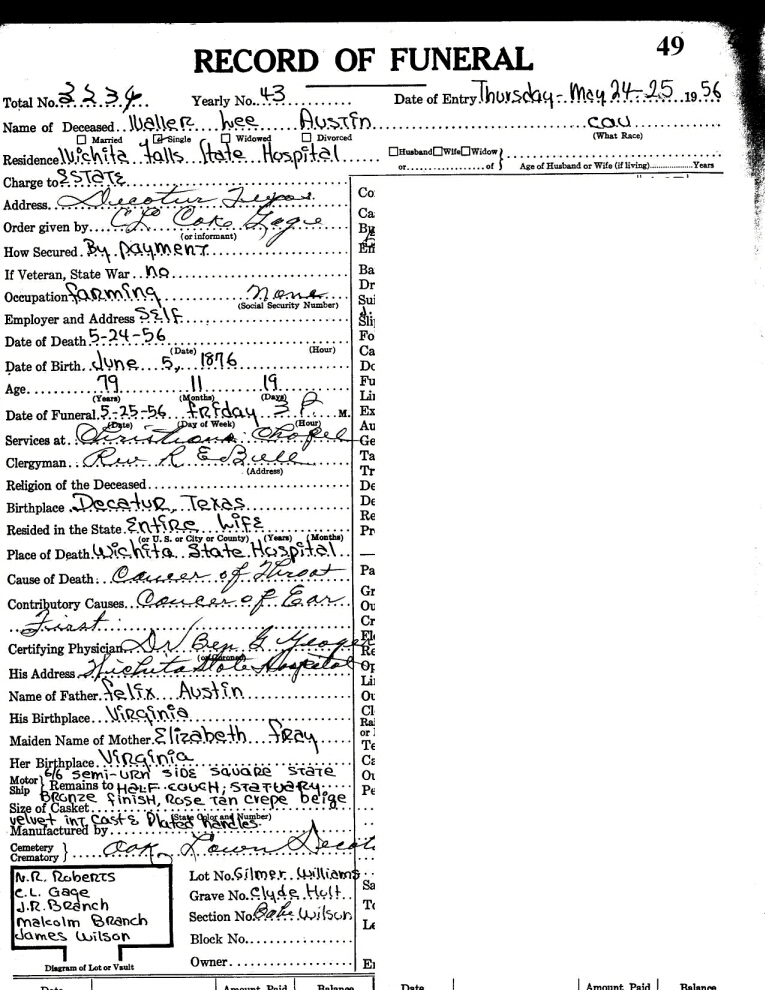 49
RECORD OF FUNERAL
Total No. 3234 Yearly No. 43 Date of Entry Thursday - May 24-25 1956
Name of Deceased Waller Lee Austin cau
(What Race)
Married Single Widowed Divorced
Residence Wichita Falls State Hospital Husband Wife Widow }
or of } Age of Husband or Wife (if living) Years
Charge to ESTATE
Address Decatur Texas
Order given by C L Gage
(or informant)
How Secured By payment
If Veteran, State War no
Occupation farming none
(Social Security Number)
Employer and Address Self
Date of Death 5-24-56
(Date) (Hour)
Date of Birth June 5, 1876
Age 79 11 19
(Years) (Months) (Days)
Date of Funeral 5-25-56 friday 3 P. M.
(Date) (Day of Week) (Hour)
Services at Christians Chapel
Clergyman Rev R E Buell
(Address)
Religion of the Deceased
Birthplace Decatur, Texas
Resided in the State Entire Life
(or U. S. or City or County) (Years) (Months)
Place of Death Wichita State Hospital
Cause of Death Cancer of Throat
Contributory Causes Cancer of Ear
First
Certifying Physician Dr Ben G
(or Coroner)
His Address Wichita State Hospital
Name of Father felix Austin
His Birthplace Virginia
Maiden Name of Mother Elizabeth fray
Her Birthplace Virginia
6/6 semi-urn side square state
Motor Ship } Remains to Half couch, statuary
Bronze finish, Rose Tan crepe beige
Size of Casket
(State Color and Number)
velvet int, cast & Plated handles
Manufactured by
Cemetery Crematory } Oak Lawn
N.R. Roberts
C.L. Gage
J.R. Branch
Malcolm Branch
James Wilson
Lot No. Gilmer Williams
Grave No. Clyde Holt
Section No. Wilson
Block No.
Owner
Diagram of Lot or Vault
Date Amount Paid Balance Date Amount Paid Balance
Co
Ca
By
Ba
Dr
Sui
Sli
Fo
Ca
Do
Fu
Lin
Ex
Au
Ge
Ta
Tr
De
De
Re
Pr
Pa
Gr
Ou
Cr
Op
Li
Ou
Cl
Rai
or
Te
Ca
Ou
Pe
Sa
To
Le